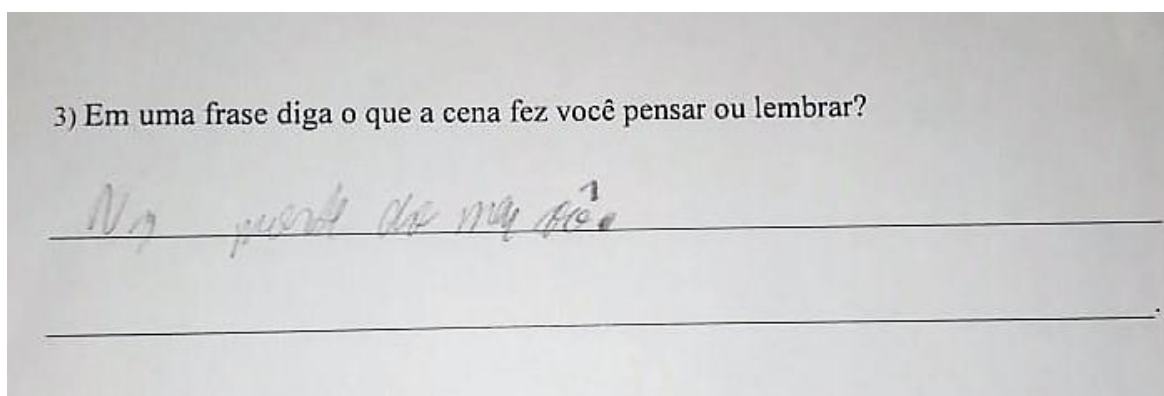 3) Em uma frase diga o que a cena fez você pensar ou lembrar?
Na do